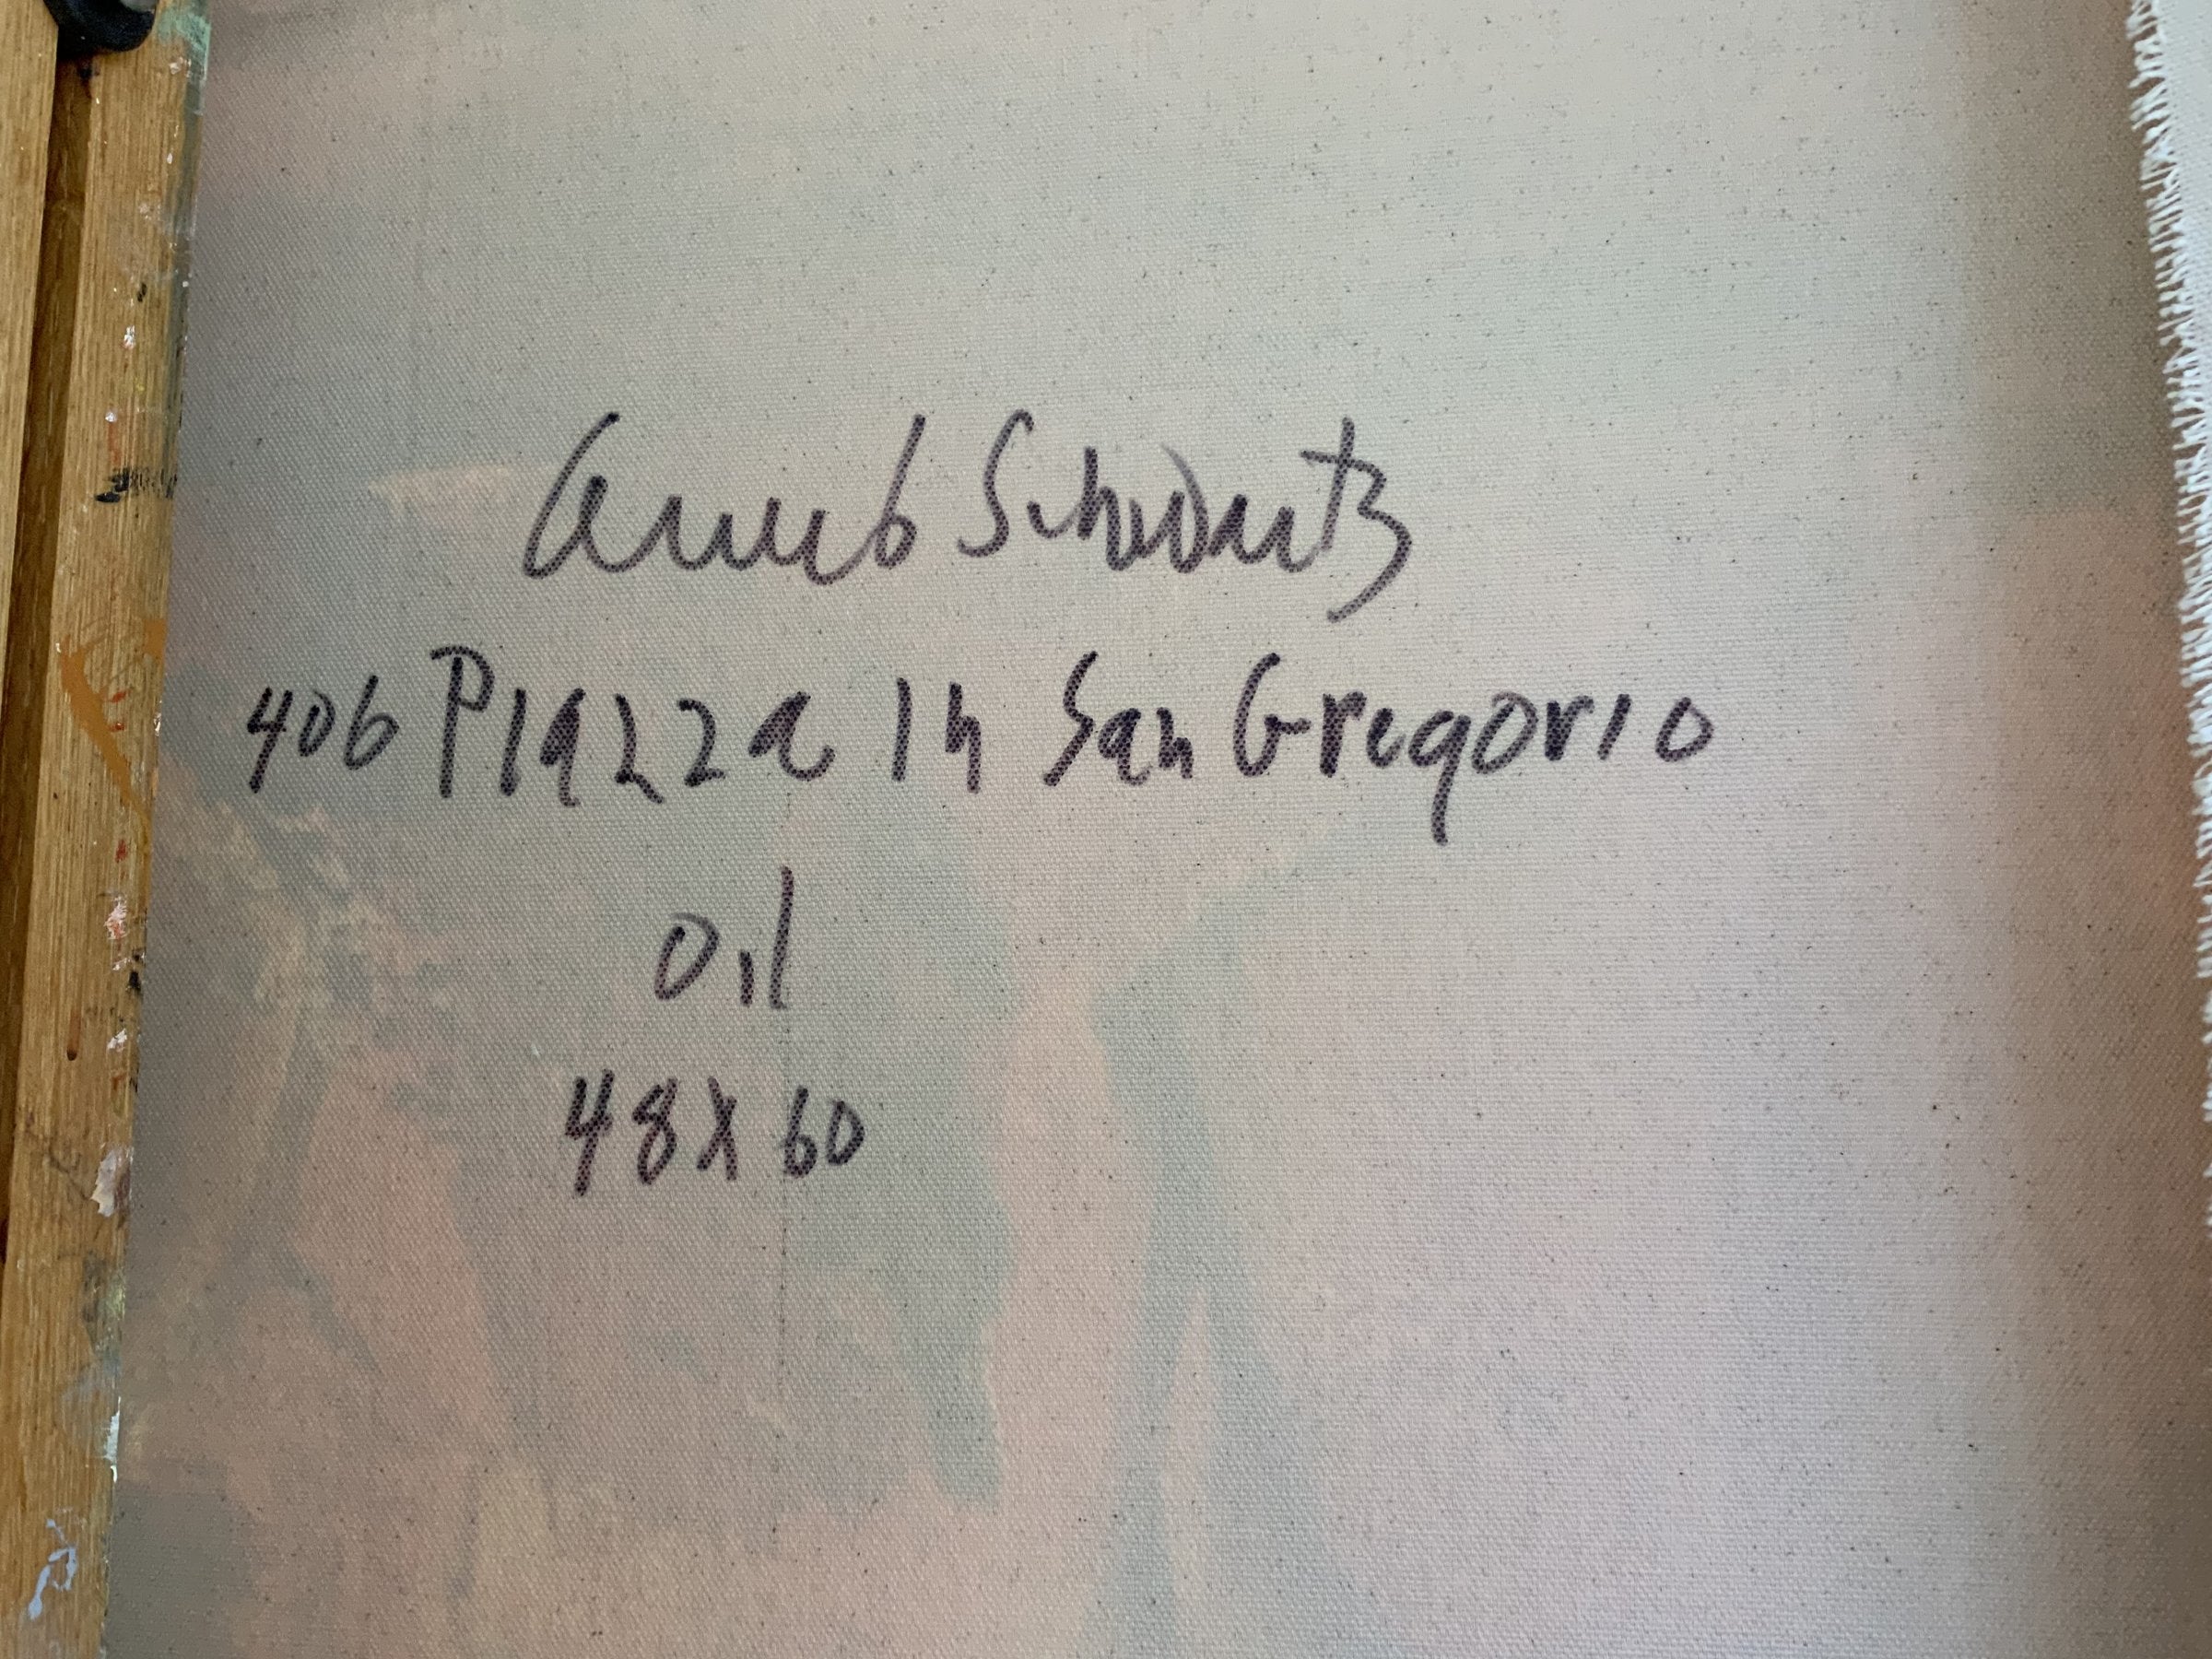 Schwartz
406 Piazza in San Gregorio
Oil
48x60